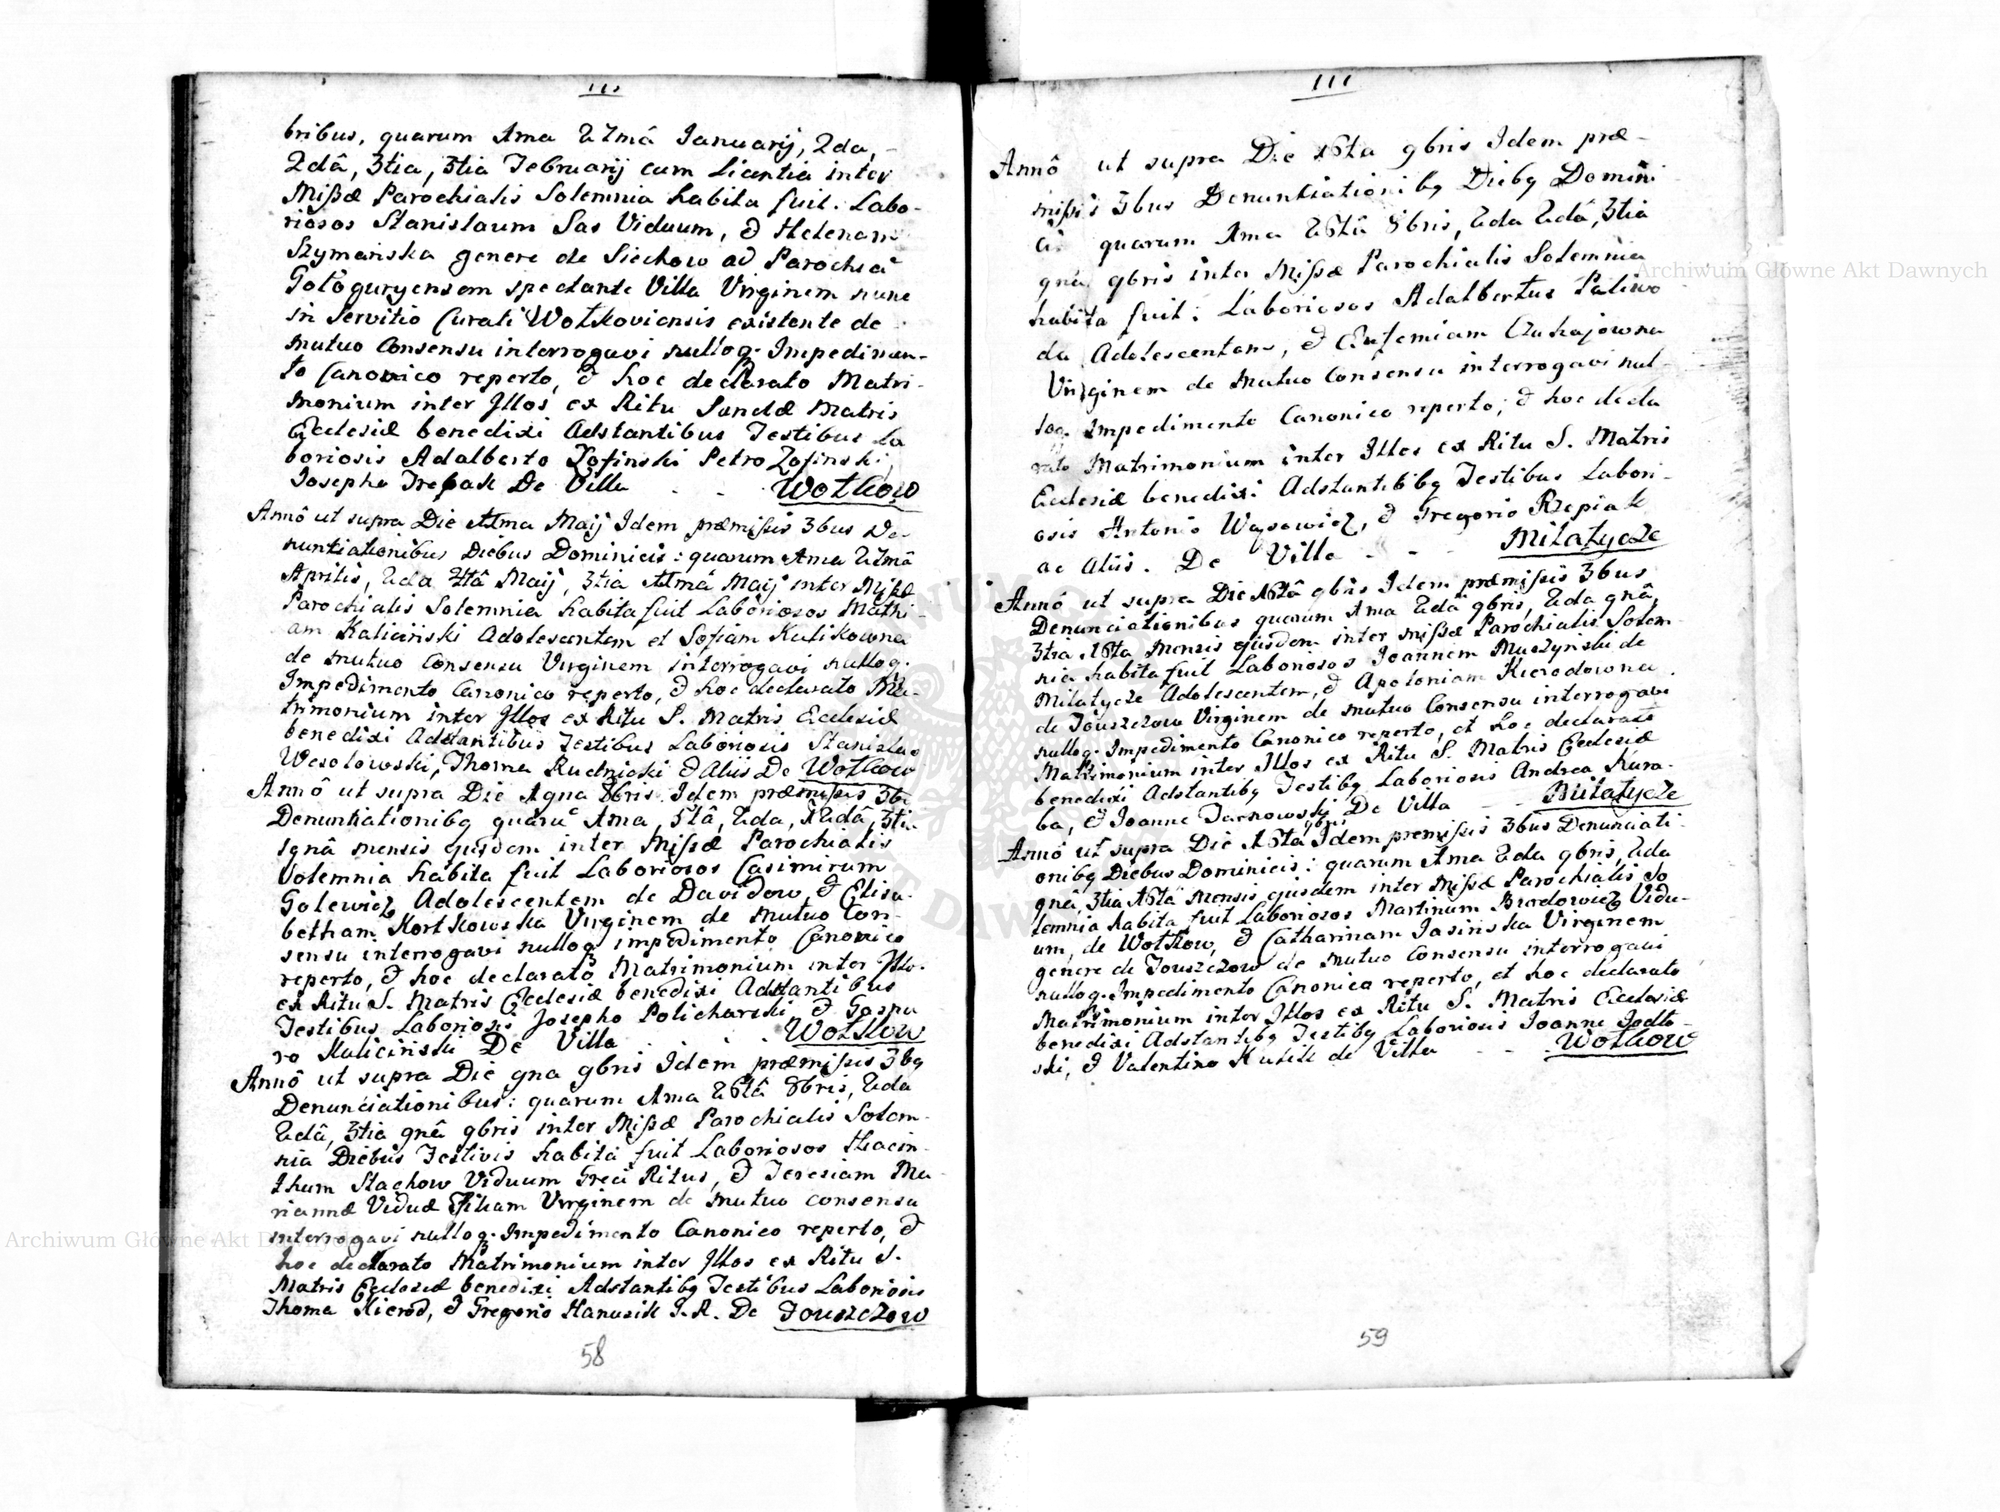 bribus, quarum Ama 27mâ Januarij, 2da,
2dâ, 3tia, 3tia Februarij cum Licentia inter
Mißæ Parochialis Solemnia habita fuit. Labo-
riosos Stanislaum Sas Viduum, & Helenam
Szymańska genere de Siechow ad Parochiã
Gołogurgensem spectante Villa Virginem nunc
in Servitio Curati Wołkoviensis existente de
mutuo Consensu interrogavi nulloq. Impedimen-
to Canonico reperto, & hoc declarato Matri-
monium inter Illos ex Ritu Sanctæ Matris
Ecclesiæ benedixi Adstantibus Testibus La
boriosis Adalberto Zofinski Petro Zofinski,
Josepho Trepak De Villa - - Wołkow
Annô ut supra Die Maij Idem præmißis 3bus De-
nuntiationibus Diebus Dominicis: quarum Ama
Aprilis, 2da Maij, 3tia Maij inter Mißæ
Parochialis Solemnia habita fuit Laboriosos Mathi-
am Kaliciński Adolescentem et Sofiam Kulikowna
de mutuo Consensu Virginem interrogavi nulloq.
Impedimento Canonico reperto, & hoc declarato Ma-
trimonium inter Illos ex Ritu S. Matris Ecclesiæ
benedixi Adstantibus Testibus Laboriosis Stanislao
Wesołowski, Thoma Rudnicki & Aliis De Wołkow
Annô ut supra Die 8bris Idem præmißis 3b
Denuntiationibq quarũ Ama, 2da, 3tia
mensis ejusdem inter Mißæ Parochialis
Solemnia habita fuit Laboriosos Casimirum
Golewicz Adolescentem de Davidow, & Elisa-
betham Kortkowska Virginem de mutuo Con-
sensu interrogavi nulloq impedimento Canonico
reperto, & hoc declarato Matrimonium inter Illo.
ex Ritu S. Matris Ecclesiæ benedixi Adstantibus
Testibus Laboriosis Josepho Policharski, & Gaspa
ro Kaliciński De Villa . . . Wołkow
Annô ut supra Die gna gbris Idem præmißis 3bq
Denunciationibus: quarum Ama 26tâ 8bris, 2da
2dâ, 3tia gnâ gbris inter Mißæ Parochialis Solem-
nia Diebus Festivis habita fuit Laboriosos Hiacin-
thum Stachow Viduum Græci Ritus, & Teresiam Ma-
riannæ Viduæ Filiam Virginem de mutuo consensu
interrogavi nulloq. Impedimento Canonico reperto, &
hoc declarato Matrimonium inter Illos ex Ritu S.
Matris Ecclesiæ benedixi Adstantibq Testibus Laboriosis
Thoma Kierod, & Gregorio Hanusik G.R. De Touszczow
58
111
Annô ut supra Die 16ta gbris Idem præ-
mißis 3bus Denuntiationibq Diebq Domini
quarum Ama 26tâ 8bris, 2da 2dâ, 3tia
gnâ gbris inter Mißæ Parochialis Solemnia
habita fuit: Laboriosos Adalbertus Paliwo
da Adolescentem, & Eufemiam Czuhajowna
Virginem de mutuo Consensu interrogavi nul-
loq. Impedimento Canonico reperto, & hoc decla
rato Matrimonium inter Illos ex Ritu S. Matris
Ecclesiæ benedixi Adstantibq Testibus Labori-
osis Antonio Wąsowicz, & Gregorio Rzepiak
ac Aliis. De Villa - - - Miłatycze
Annô ut supra Die 16tâ gbris Idem præmißis 3bus
Denunciationibus quarum Ama 2dâ gbris, 2da gnâ,
3tia 16ta mensis ejusdem inter Mißæ Parochialis Solem-
nia habita fuit Laboriosos Joannem Muszyński de
Miłatycze Adolescentem, & Apoloniam Kierodowna
de Touszczow Virginem de mutuo Consensu interrogavi
nulloq. Impedimento Canonico reperto, et hoc declarato
Matrimonium inter Illos ex Ritu S. Matris Ecclesiæ
benedixi Adstantibq Testibq Laboriosis Andrea Kura-
ba, & Joanne Tarnowski De Villa - - Miłatycze
Annô ut supra Die 16ta gbris Idem premißis 3bus Denunciati-
onibq Diebus Dominicis: quarum Ama 2da gbris, 2da
gnâ, 3tia 16tâ mensis ejusdem inter Mißæ Parochialis So
lemnia habita fuit Laboriosos Martinum Bredowicz Vidu-
um, de Wołkow, & Catharinam Jasinska Virginem
genere de Touszczow de mutuo Consensu interrogavi
nulloq. Impedimento Canonico reperto, et hoc declarato
Matrimonium inter Illos ex Ritu S. Matris Ecclesiæ
benedixi Adstantibq Testibq Laboriosis Joanne Jodło-
ski, & Valentino Kusik de Villa - - Wołkow
59
Archiwum Główne Akt Dawnych
Archiwum Główne Akt Dawnych